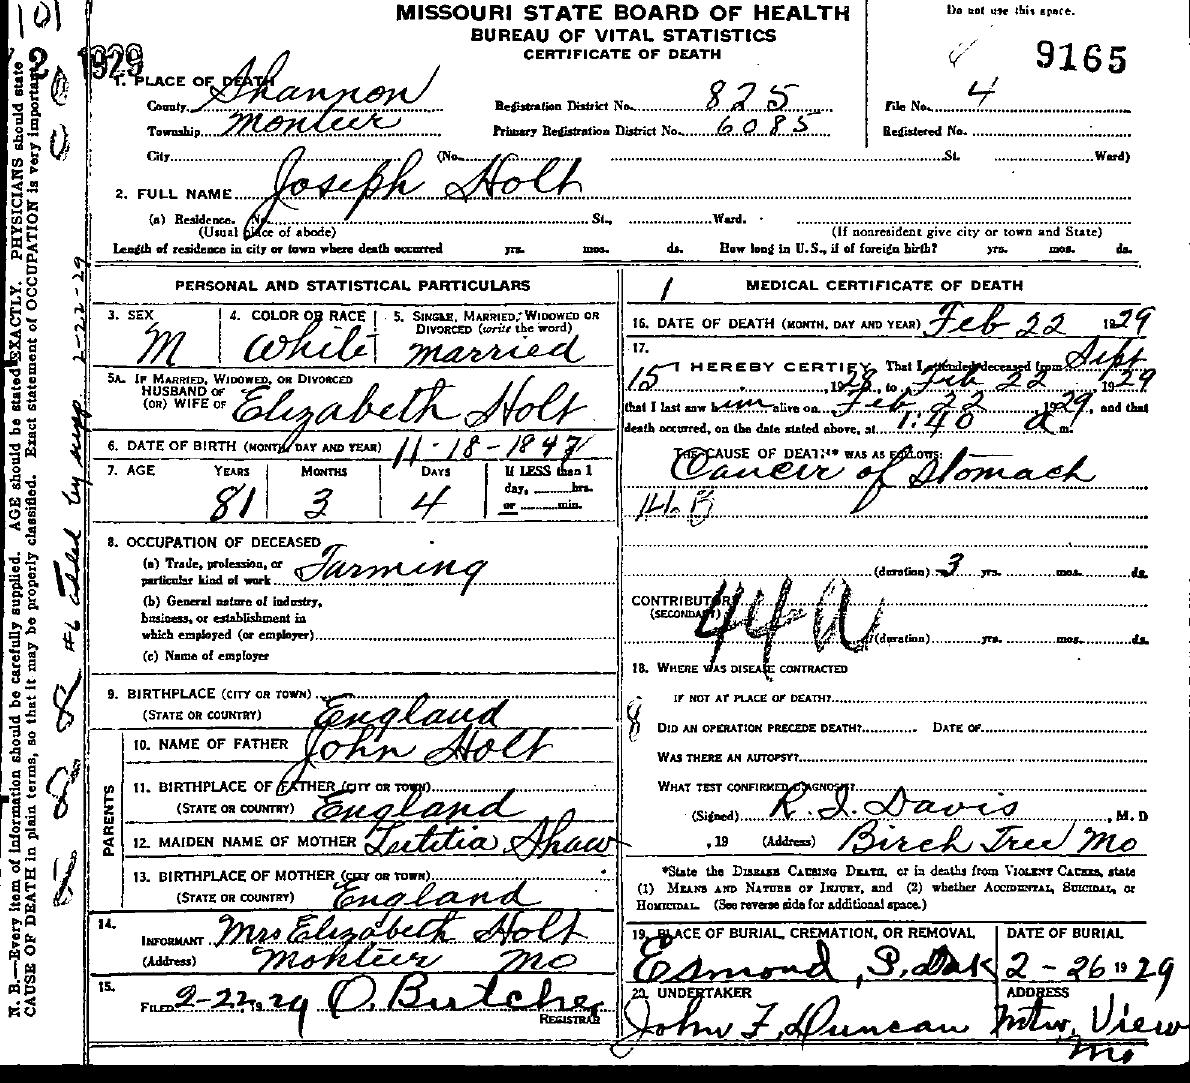 MISSOURI STATE BOARD OF HEALTH
BUREAU OF VITAL STATISTICS
CERTIFICATE OF DEATH
Do not use this space.
9165
1929
1. PLACE OF DEATH
County Shannon Registration District No. 825 File No. 4
Township Montier Primary Registration District No. 6085 Registered No.
City (No. St. Ward)
2. FULL NAME Joseph Holt
(a) Residence. No. St., Ward.
(Usual place of abode) (If nonresident give city or town and State)
Length of residence in city or town where death occurred yrs. mos. ds. How long in U.S., if of foreign birth? yrs. mos. ds.
PERSONAL AND STATISTICAL PARTICULARS
3. SEX M
4. COLOR OR RACE White
5. SINGLE, MARRIED, WIDOWED OR DIVORCED (write the word) married
5A. IF MARRIED, WIDOWED, OR DIVORCED
HUSBAND OF
(OR) WIFE OF Elizabeth Holt
6. DATE OF BIRTH (MONTH, DAY AND YEAR) 11-18-1847
7. AGE YEARS MONTHS DAYS If LESS than 1
81 3 4 day, hrs.
or min.
8. OCCUPATION OF DECEASED
(a) Trade, profession, or
particular kind of work Farming
(b) General nature of industry,
business, or establishment in
which employed (or employer)
(c) Name of employer
9. BIRTHPLACE (CITY OR TOWN)
(STATE OR COUNTRY) England
PARENTS
10. NAME OF FATHER John Holt
11. BIRTHPLACE OF FATHER (CITY OR TOWN)
(STATE OR COUNTRY) England
12. MAIDEN NAME OF MOTHER Letitia Shaw
13. BIRTHPLACE OF MOTHER (CITY OR TOWN)
(STATE OR COUNTRY) England
14.
INFORMANT Mrs Elizabeth Holt
(Address) Montier Mo
15.
FILED 2-22, 1929 O. Butcher
REGISTRAR
MEDICAL CERTIFICATE OF DEATH
16. DATE OF DEATH (MONTH, DAY AND YEAR) Feb 22 1929
17.
I HEREBY CERTIFY, That I attended deceased from Sept
15, 1928, to Feb 22 1929
that I last saw him alive on Feb 22 1929, and that
death occurred, on the date stated above, at 1:40 a m.
THE CAUSE OF DEATH* WAS AS FOLLOWS:
Cancer of Stomach
(duration) 3 yrs. mos. ds.
CONTRIBUTORY
(SECONDARY) 44a
(duration) yrs. mos. ds.
18. WHERE WAS DISEASE CONTRACTED
IF NOT AT PLACE OF DEATH?
DID AN OPERATION PRECEDE DEATH? DATE OF
WAS THERE AN AUTOPSY?
WHAT TEST CONFIRMED DIAGNOSIS?
(Signed) R. I. Davis, M. D
, 19 (Address) Birch Tree Mo
*State the DISEASE CAUSING DEATH, or in deaths from VIOLENT CAUSES, state
(1) MEANS AND NATURE OF INJURY, and (2) whether ACCIDENTAL, SUICIDAL, or
HOMICIDAL. (See reverse side for additional space.)
19. PLACE OF BURIAL, CREMATION, OR REMOVAL DATE OF BURIAL
Esmond, S. Dak 2-26 1929
20. UNDERTAKER ADDRESS
John F. Duncan Mtn. View
Mo
N. B.—Every item of information should be carefully supplied. AGE should be stated EXACTLY. PHYSICIANS should state
CAUSE OF DEATH in plain terms, so that it may be properly classified. Exact statement of OCCUPATION is very important.